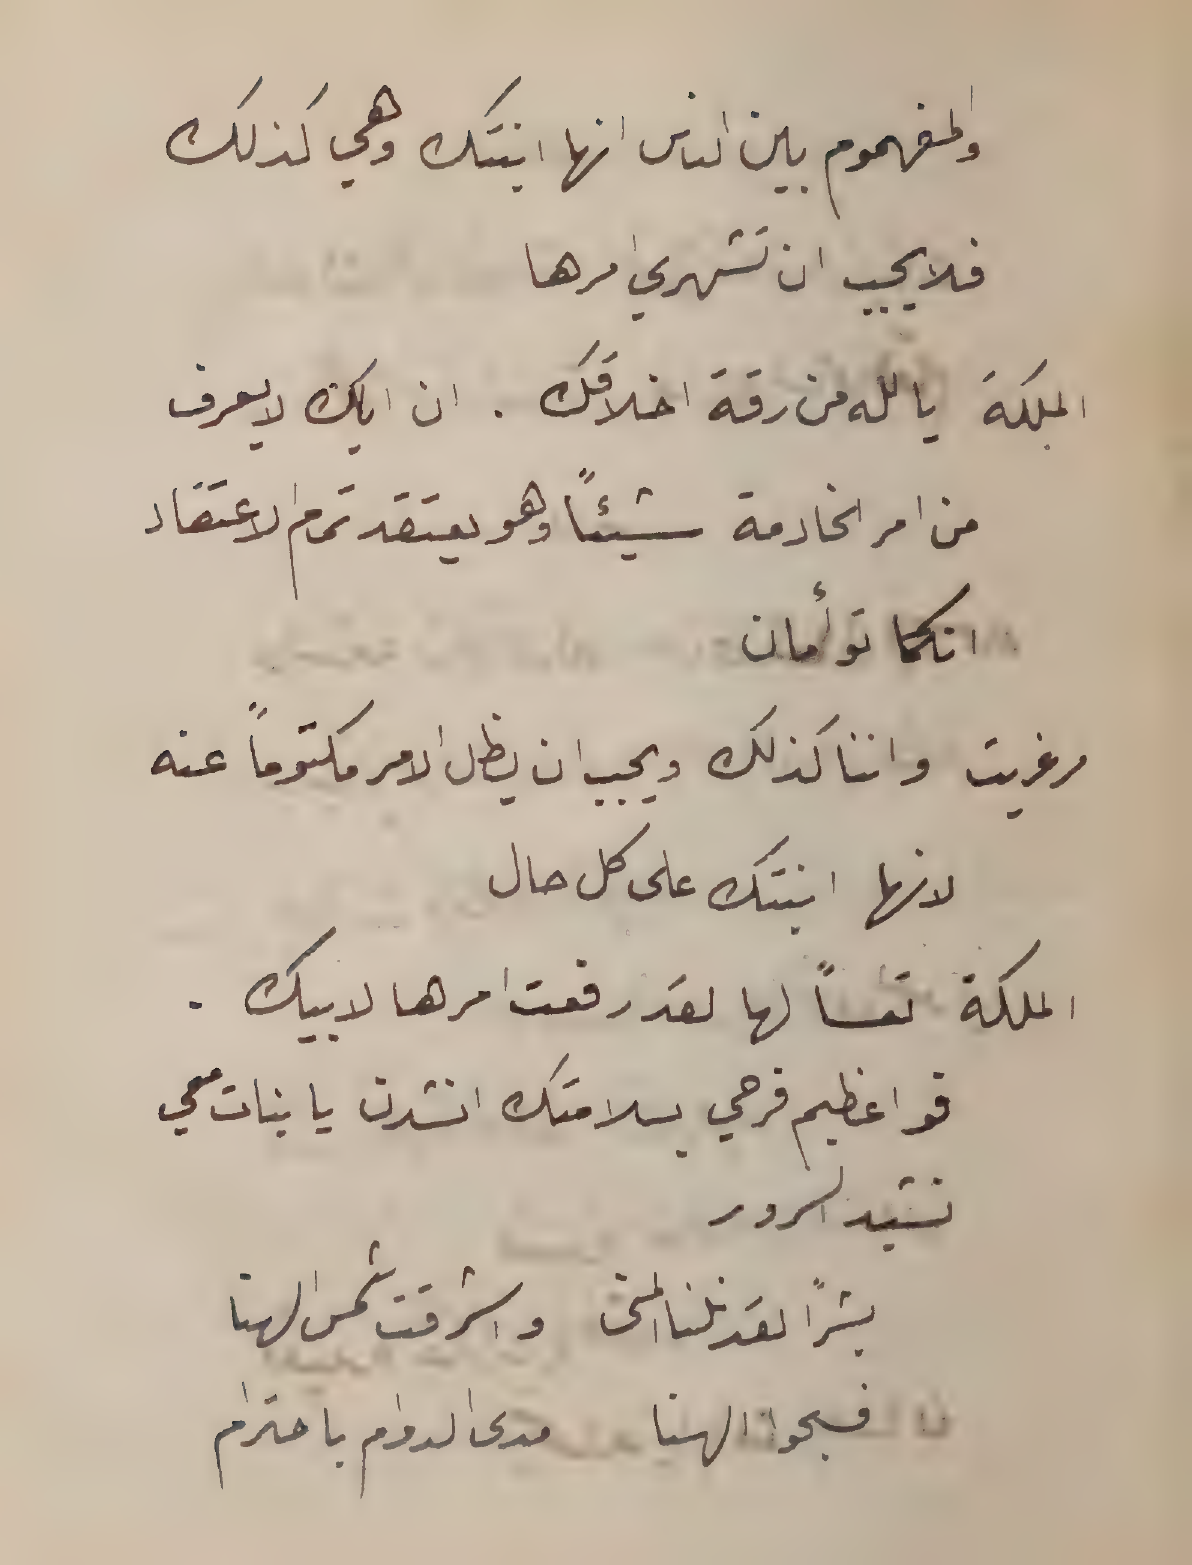 والمفهوم بين الناس انها ابنتك وهي كذلك
فلا يجب ان تشهري امرها
الملكة يا لله من رقة اخلاقك . ان اباك لا يعرف
من امر الخادمة شيئاً وهو يعتقد تمام الاعتقاد
انكما توأمان
مرغريت واننا كذلك ويجب ان يظل الامر مكتوماً عنه
لانها ابنتك على كل حال
الملكة تعساً لها لقد رفعت امرها لابيك .
فوا عظيم فرحي بسلامتك انشدن يا بنات معي
نشيد السرور
بشراً لقد نلنا المنى واشرقت شمس الهنا
فسبحوا الهنا مدى الدوام باحترام